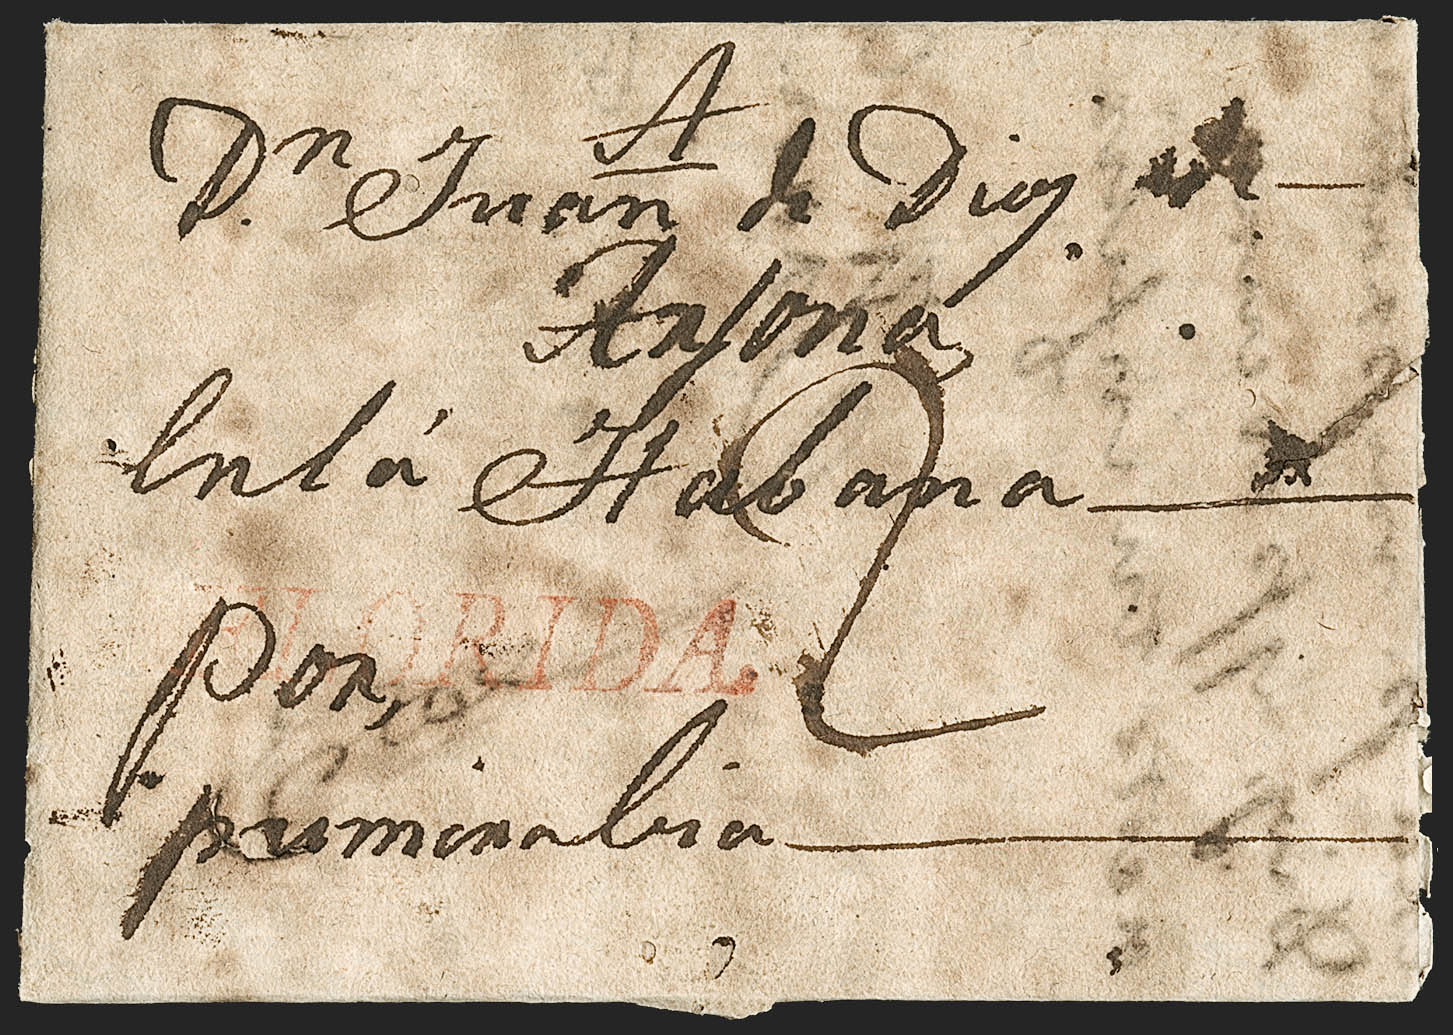 A
Dn. Juan de Dios
Ansona
En lá Habana
FLORIDA.
2
por,
primera bia